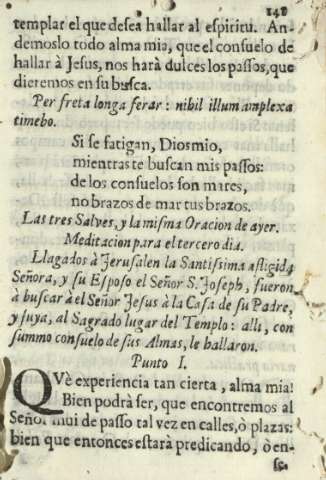 141
templar el que desea hallar al espiritu. An-
demoslo todo alma mia, que el consuelo de
hallar à Jesus, nos harà dulces los passos, que
dieremos en su busca.
Per freta longa ferar: nihil illum amplexa
timebo.
Si se fatigan, Dios mio,
mientras te buscan mis passos:
de los consuelos son mares,
no brazos de mar tus brazos.
Las tres Salves, y la misma Oracion de ayer.
Meditacion para el tercero dia.
Llagados à Jerusalen la Santissima afligida
Señora, y su Esposo el Señor S. Joseph, fueron
à buscar à el Señor Jesus à la Casa de su Padre,
y suya, al Sagrado lugar del Templo: alli, con
summo consuelo de sus Almas, le hallaron.
Punto I.
QVè experiencia tan cierta, alma mia!
Bien podrà ser, que encontremos al
Señor mui de passo tal vez en calles, ò plazas:
bien que entonces estarà predicando, ò en-